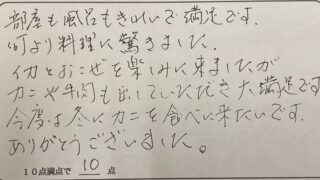 部屋も風呂もきれいで満足です。
何より料理に驚きました。
イカとおこぜを楽しみに来ましたが
カニや牛肉も出していただき大満足です
今度は冬にカニを食べに来たいです。
ありがとうございました。
10点満点で 10 点